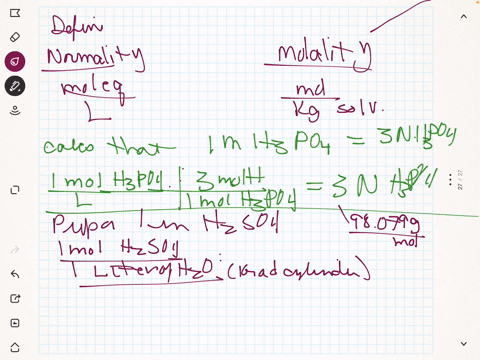 Defin
Normality
moleq
L
Molality
mol
Kg solv.
calcs that 1M H3PO4 = 3N H3PO4
1 mol H3PO4 | 3 mol H = 3 N H3PO4
L | 1 mol H3PO4
1 m H2SO4 98.079g
mol
1 mol H2SO4
1 Liter of H2O: (Grad cylinder)
27 / 27